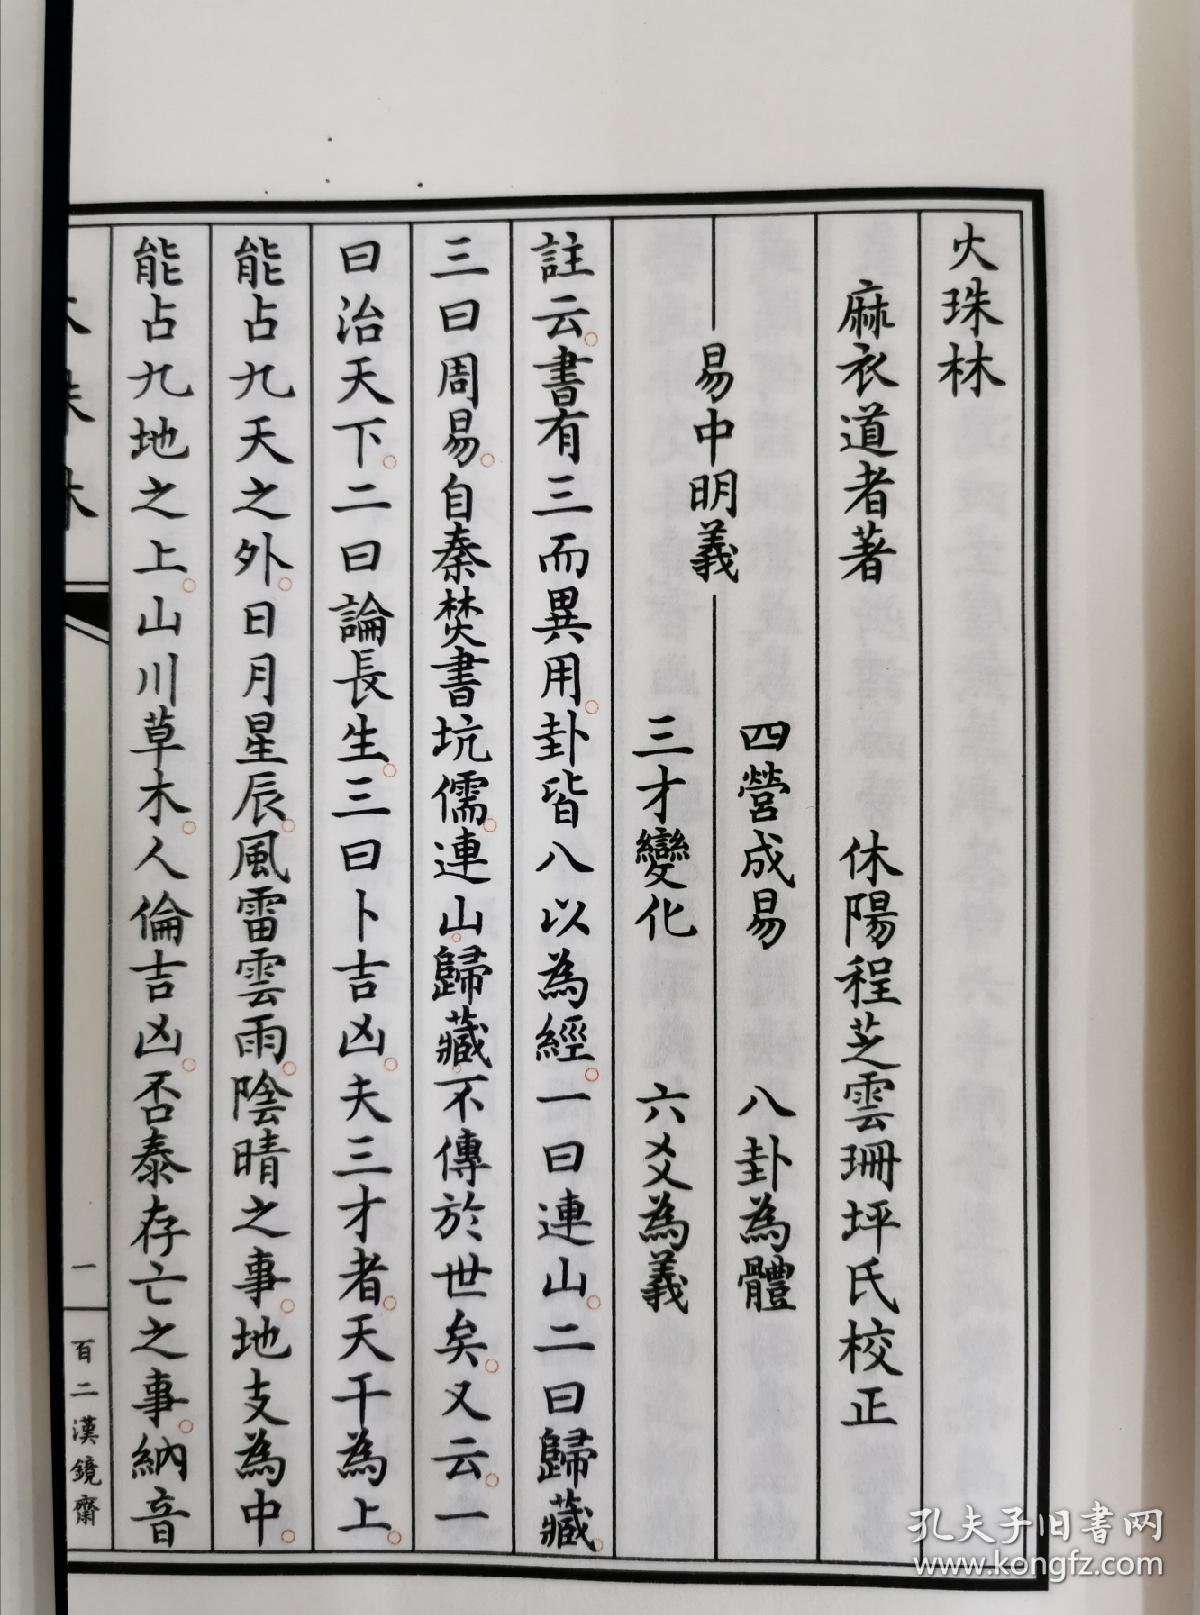 火珠林
麻衣道者著　休陽程芝雲珊坪氏校正
易中明義
四營成易　八卦為體
三才變化　六爻為義
註云。書有三而異用。卦皆八以為經。一曰連山。二曰歸藏。
三曰周易。自秦焚書坑儒。連山。歸藏。不傳於世矣。又云。一
曰治天下。二曰論長生。三曰卜吉凶。夫三才者。天干為上。
能占九天之外。日月星辰。風雷雲雨。陰晴之事。地支為中。
能占九地之上。山川草木。人倫吉凶。否泰存亡之事。納音
火珠林
一
百二漢鏡齋
孔夫子旧書网
www.kongfz.com